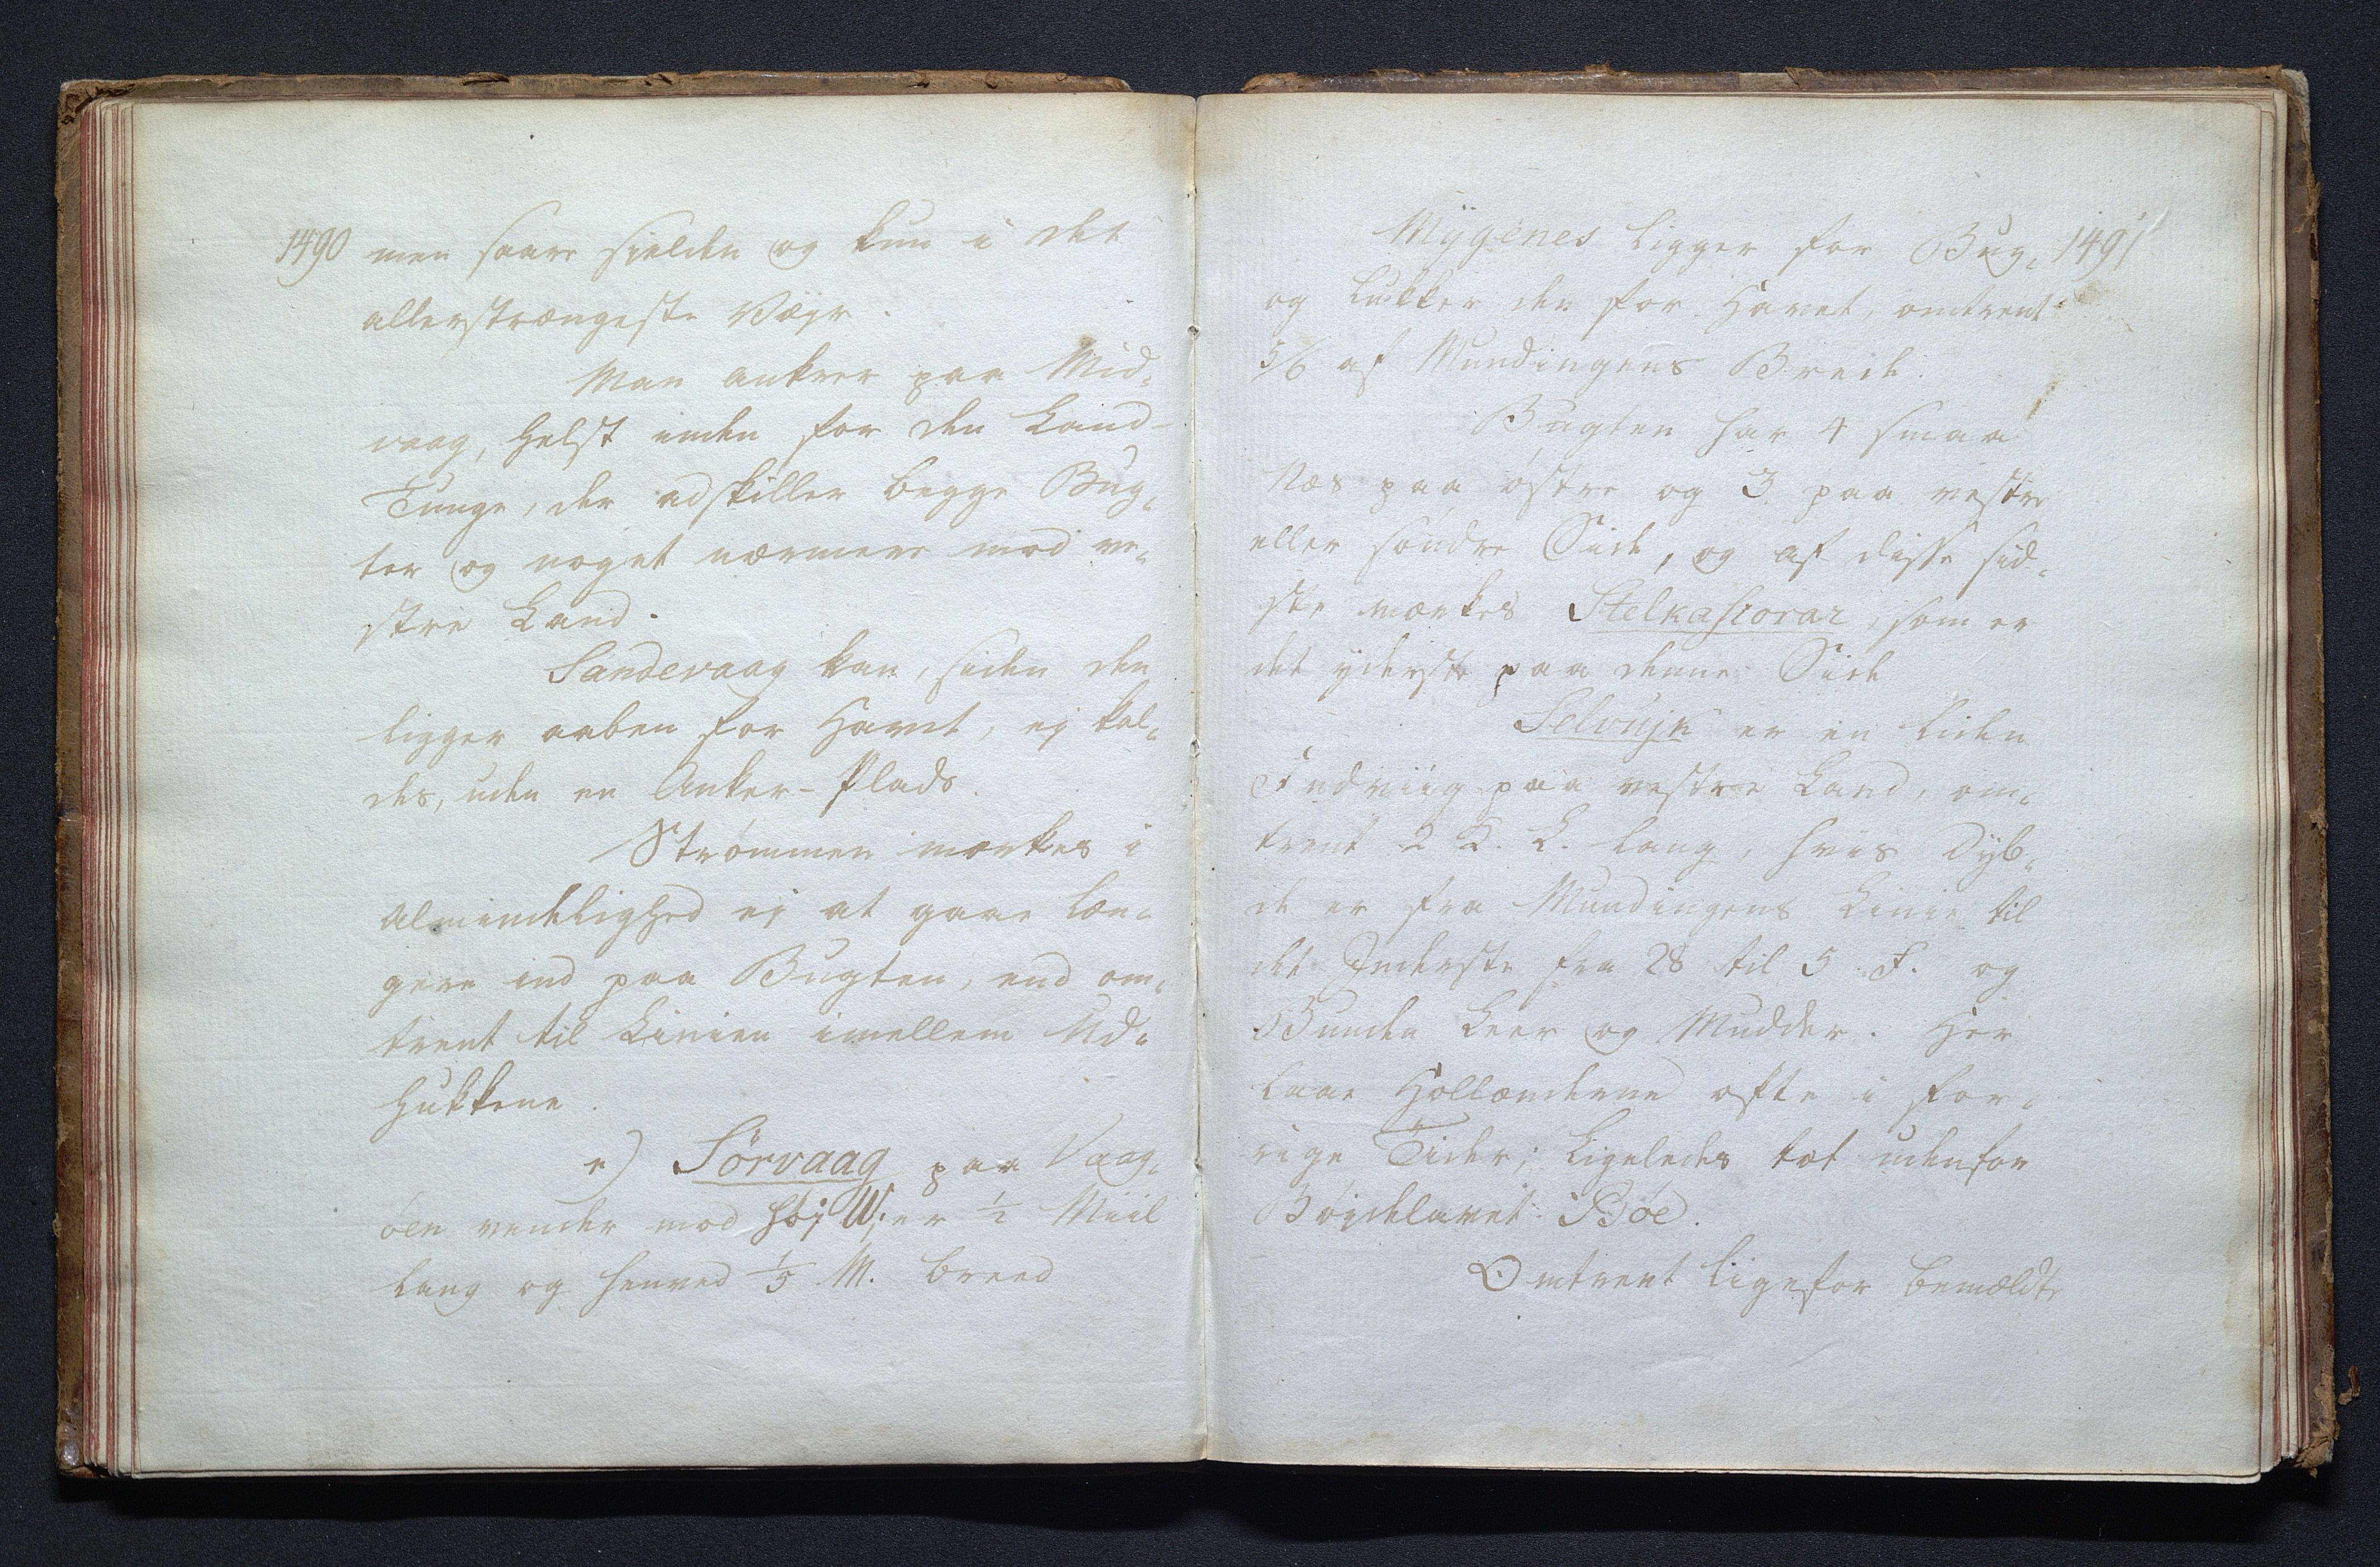 1490 men saare sielden og kun i det
allerstrængeste Vejr.
Man ankrer paa Mid¬
vaag, helst inden for den Land-
Tunge, der adskiller begge Bug¬
ter og noget nærmere mod ve¬
stre Land.
Sandevaag kan, siden den
ligger aaben for Havet, ej kal¬
des, uden en Anker-Plads.
Strømmen mærkes i
Almindelighed ej at gaae læn¬
gere ind paa Bugten, end om¬
trent til Linien imellem Ud¬
Hukkene.
e) Sørvaag paa Vaag¬
øen vender mod W; er ½ Miil
lang og henved 1/5 M. breed
Mÿgenes ligger for Bug¬ 1491
og lukker der for Havet, omtrent
5/6 af Mundingens Brede.
Bugten har 4 smaa
Næs paa østre og 3 paa vestre
eller søndre Side, og af disse sid¬
ste mærkes Stelkahiorar, som er
det yderste paa denne Side
Selvujk er en liden
Indviig paa vestre Land, om¬
trent 2 K. L. lang, hvis Dyb¬
de er fra Mundingens Linie til
det Inderste fra 28 til 5 F. og
Bunden Leer og Mudder. Her
laae Hollænderne ofte i for¬
rige Tider; ligeledes tæt udenfor
Bøjdelavet Bøe.
Omtrent ligefor bemældte